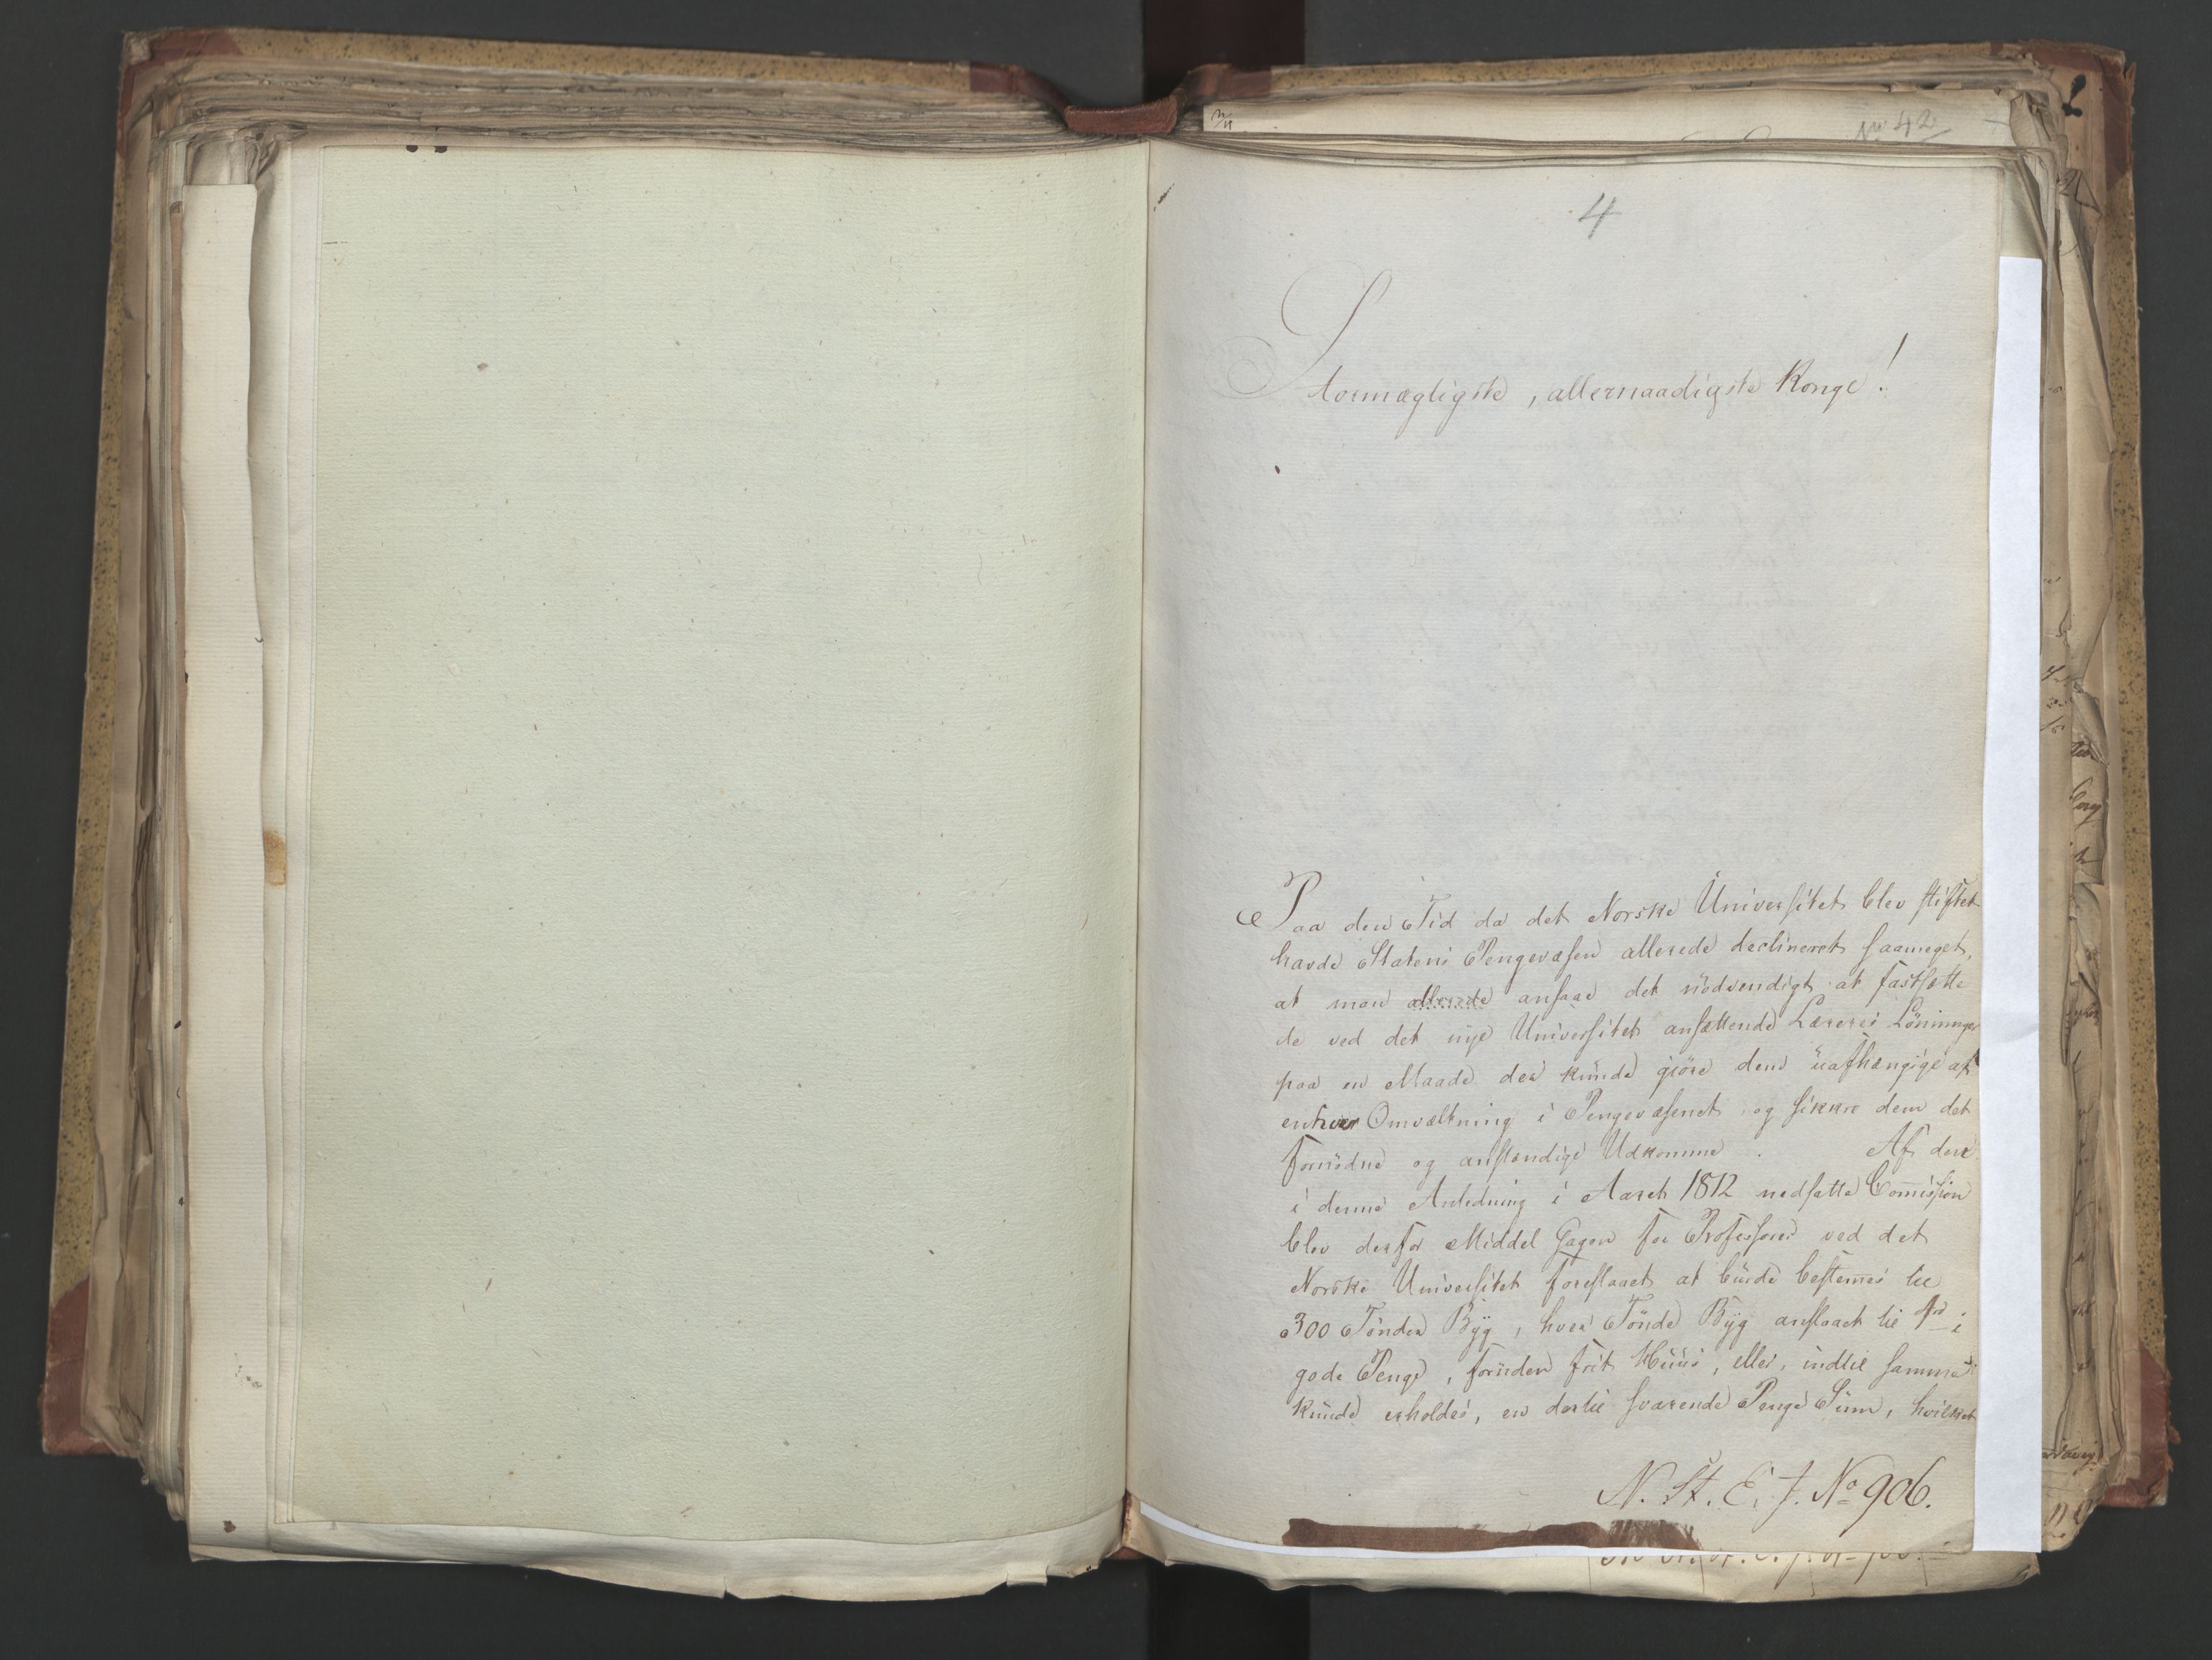 No 42
4
Stormægtigste, allernaadigste Konge!
Paa den Tid da det Norske Universitet blev stiftet
havde Statens Pengevæsen allerede declineret saameget,
at man allerede ansaae det nödvendigt at fastsætte
de ved det nye Universitet ansættende Læreres Lönninger
paa en Maade der kunde giöre dem uafhængige af
enhver Omvæltning i Pengevæsenet og sikkre dem det
fornödne og anstændige Udkomme. Af den
i denne Anledning i Aaret 1812 nedsatte Commission
blev derfor Middel Gagen for Professorer ved det
Norske Universitet foreslaaet at burde bestemmes til
300 Tönder Byg, hver Tönde Byg anslaaet til i
gode Penge, foruden frit Huus, eller, indtil samme
kunde erholdes, en dertil svarende Penge Sum, hvilket
N. St. E. J. No 906.